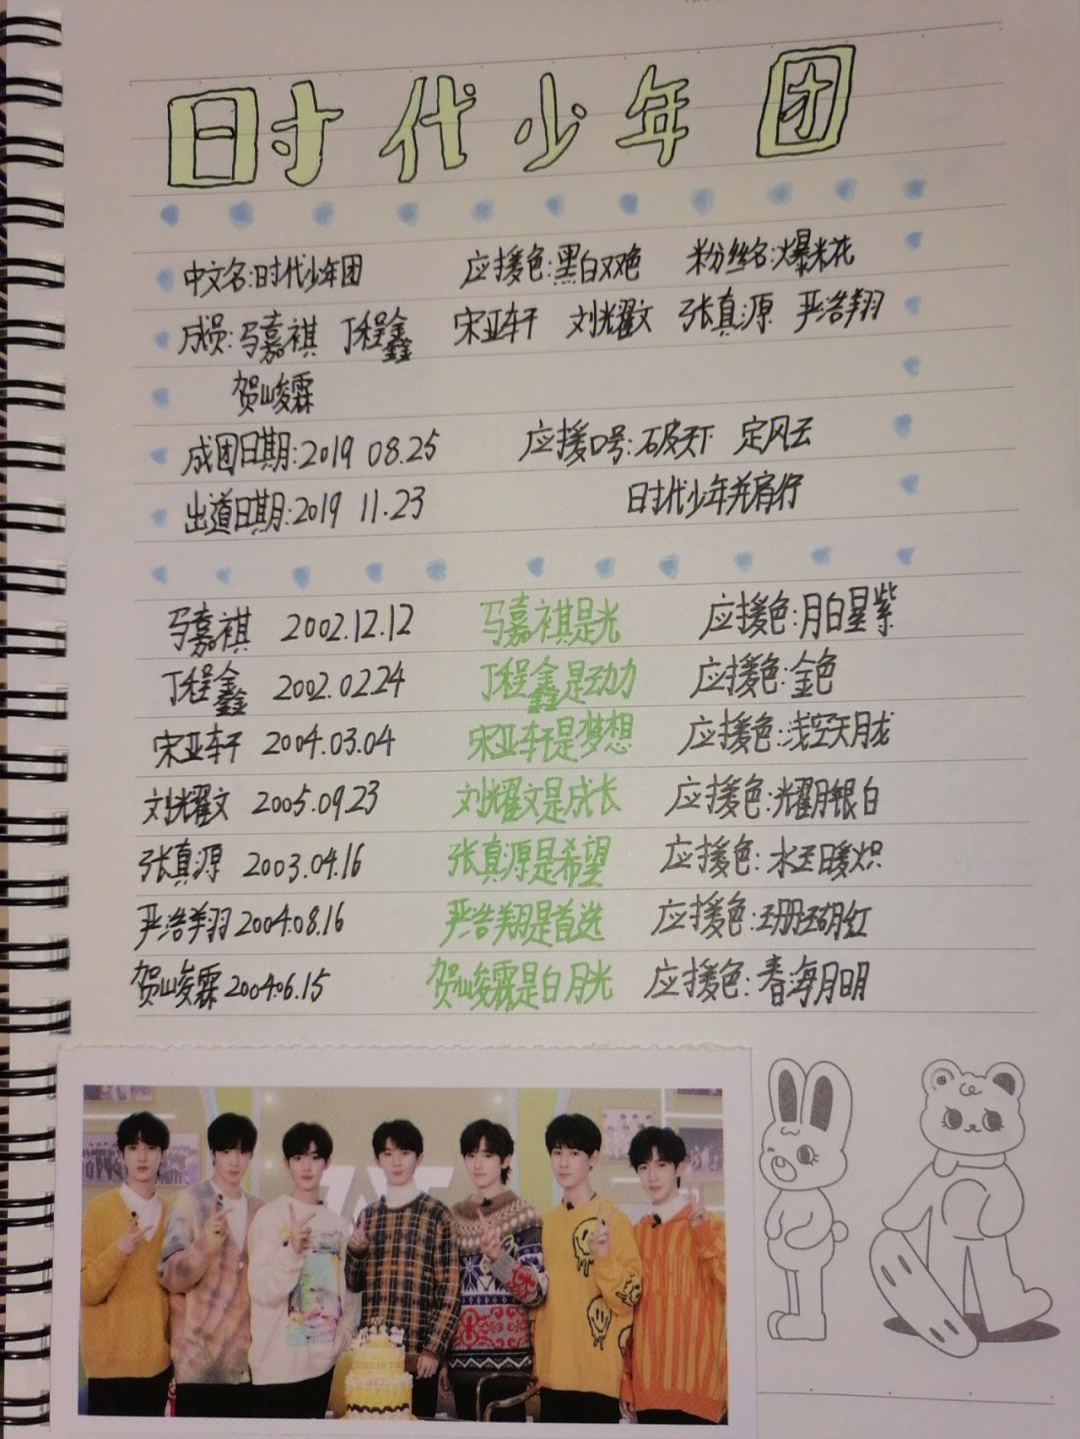 时代少年团
中文名:时代少年团 应援色:黑白双色 粉丝名:爆米花
成员:马嘉祺 丁程鑫 宋亚轩 刘耀文 张真源 严浩翔
贺峻霖
成团日期:2019 08.25 应援口号:破天下 定风云
出道日期:2019 11.23 时代少年并肩行
马嘉祺 2002.12.12 马嘉祺是光 应援色:月白星紫
丁程鑫 2002.02.24 丁程鑫是动力 应援色:金色
宋亚轩 2004.03.04 宋亚轩是梦想 应援色:浅空天胧
刘耀文 2005.09.23 刘耀文是成长 应援色:耀月银白
张真源 2003.04.16 张真源是希望 应援色:水玉暖炽
严浩翔 2004.08.16 严浩翔是首选 应援色:珊瑚红
贺峻霖 2004.06.15 贺峻霖是白月光 应援色:春海月明